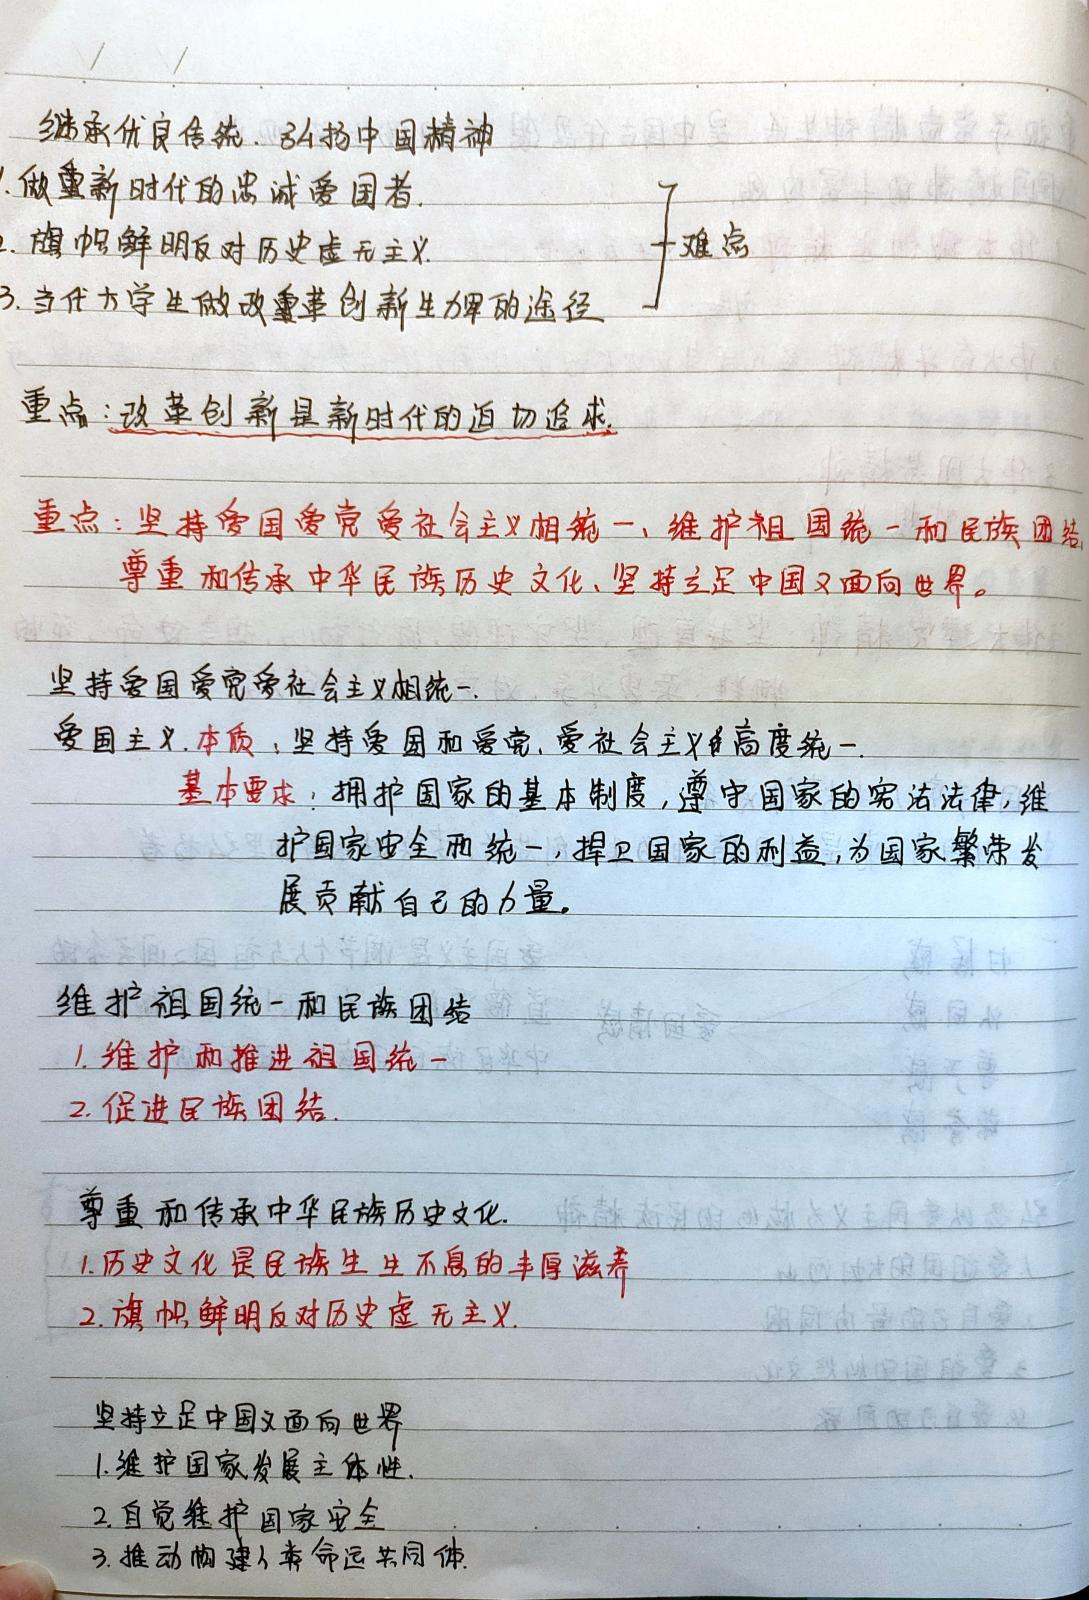 继承优良传统、弘扬中国精神
1.做新时代的忠诚爱国者.
2.旗帜鲜明反对历史虚无主义.
3.当代大学生做改革创新生力军的途径
难点
重点:改革创新是新时代的迫切追求.
重点:坚持爱国爱党爱社会主义相统一、维护祖国统一和民族团结,
尊重和传承中华民族历史文化、坚持立足中国又面向世界。
坚持爱国爱党爱社会主义相统一.
爱国主义.本质:坚持爱国和爱党、爱社会主义高度统一.
基本要求:拥护国家的基本制度,遵守国家的宪法法律,维
护国家安全和统一,捍卫国家的利益,为国家繁荣发
展贡献自己的力量。
维护祖国统一和民族团结
1.维护和推进祖国统一
2.促进民族团结.
尊重和传承中华民族历史文化.
1.历史文化是民族生生不息的丰厚滋养
2.旗帜鲜明反对历史虚无主义.
坚持立足中国又面向世界
1.维护国家发展主体性.
2.自觉维护国家安全
3.推动构建人类命运共同体.